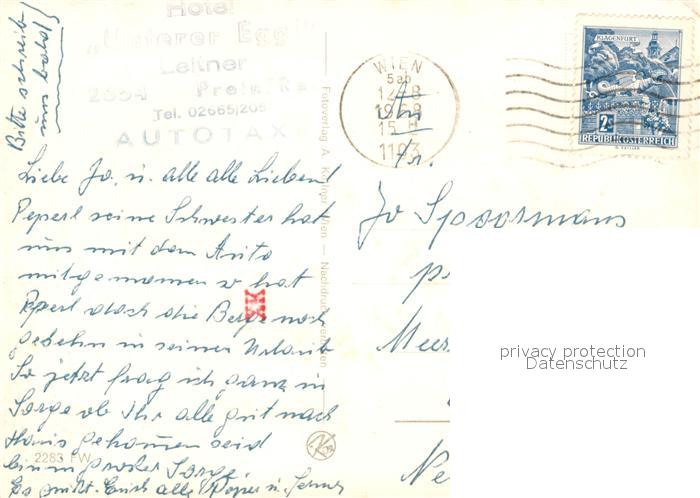 Bitte schreib
uns bald
Hotel
„Unterer Eggl"
Leitner
2654 Prein/Rax
Tel. 02665/205
AUTOTAXI
WIEN
5ab
15 H
1103
KLAGENFURT
2 S
REPUBLIK ÖSTERREICH
Liebe Jo, u. alle alle Lieben!
Peperl seine Schwester hat
uns mit dem Auto
mitgenommen so hat
Peperl doch die Berge noch
gesehn in seinen Urlaub
So jetzt frag ich ganz in
Sorge ob Ihr alle gut nach
Haus gekommen seid
bin in großer Sorge.
Es grüßt Euch alle Peperl u.
An
Fr.
Jo Spoormans
Meer
Ne
Fotoverlag A. Kellner Wien — Nachdruck verboten
2283 FW
privacy protection
Datenschutz